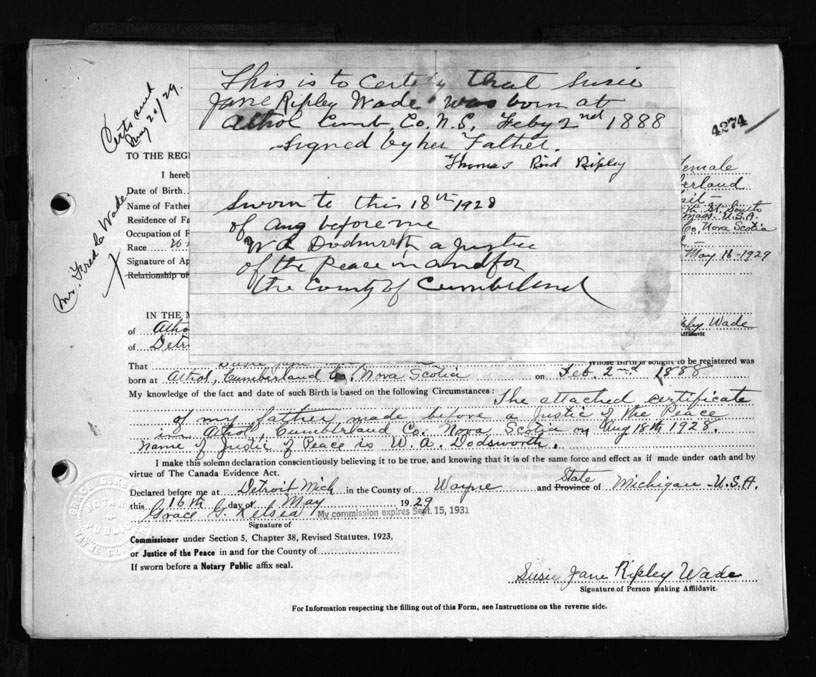 This is to Certify that Susie
Jane Ripley Wade was born at
Athol Cumb. Co. N.S. Feby 2nd 1888
Signed by her Father.
Thomas Ripley
Sworn to this 18th 1928
of Aug before me
W A Dodsworth a Justice
of the Peace in and for
the County of Cumberland
4274
Certs sent
Aug 20/29.
Mrs. Fred C Wade
TO THE REGI
I hereb
Date of Birth
Name of Father
Residence of Fa
Occupation of F
Race
Signature of Ap
Relationship of
Female
erland
Mass. U.S.A.
Co. Nova Scotia
May 16-1929
IN THE M
of Atho
of Detr
Wade
ffidavit
That Susie Jane whose Birth is sought to be registered was
born at Athol, Cumberland Co., Nova Scotia on Feb. 2nd 1888
My knowledge of the fact and date of such Birth is based on the following Circumstances: The attached certificate
of my father made before a Justice of the Peace
in Athol, Cumberland Co. Nova Scotia on Aug 18th, 1928.
Name of Justic of Peace is W. A. Dodsworth.
I make this solemn declaration conscientiously believing it to be true, and knowing that it is of the same force and effect as if made under oath and by
virtue of The Canada Evidence Act.
Declared before me at Detroit Mich in the County of Wayne and State Province of Michigan - U.S.A.
this 16th day of May 1929
Grace G. Kelsea My commission expires Sept. 15, 1931
Signature of
Commissioner under Section 5, Chapter 38, Revised Statutes, 1923,
or Justice of the Peace in and for the County of
If sworn before a Notary Public affix seal.
Susie Jane Ripley Wade
Signature of Person making Affidavit.
For Information respecting the filling out of this Form, see Instructions on the reverse side.